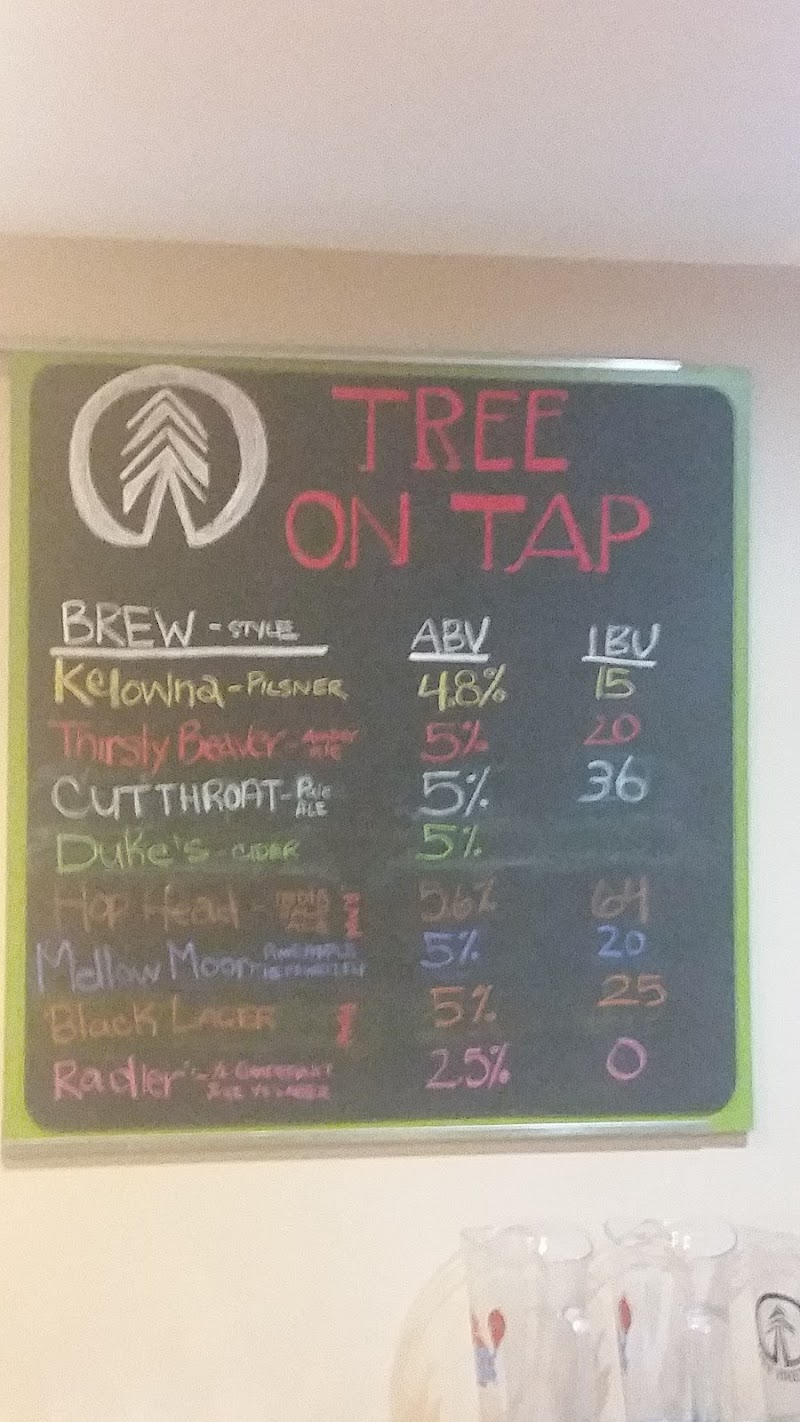 TREE
ON TAP
BREW - STYLE ABV IBU
Kelowna - PILSNER 4.8% 15
Thirsty Beaver - Amber ALE 5% 20
CUTTHROAT - Pale ALE 5% 36
Duke's - CIDER 5%
Hop Head - INDIA 5.6% 64
Mellow Moon - PINEAPPLE HEFEWEIZEN 5% 20
Black LAGER 5% 25
Radler - 1/2 LAGER 2.5% 0